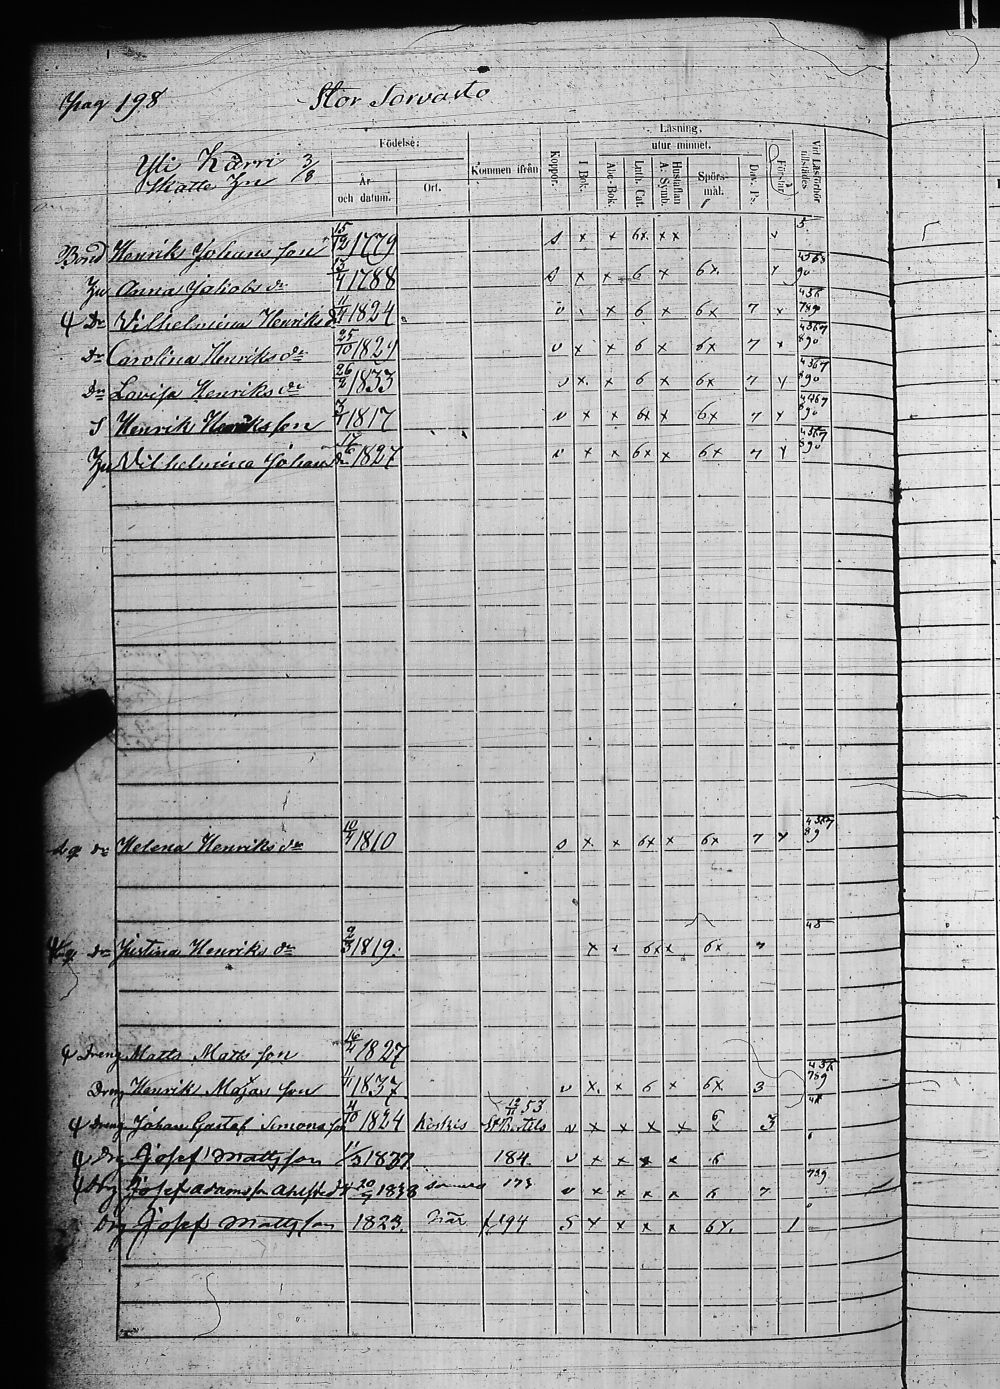 Pag 198 Stor Sorvasto
Yli Kärri 3/8
Skatte
Födelse:
År och datum.
Ort.
Kommen ifrån
Koppor.
Läsning,
utur minnet.
I Bok.
Abc-Bok
Luth. Cat.
Hustaflan A. Symb.
Spörsmål.
Dav. Ps.
Förstår
Vid Läsförhör tillstädes
Bond Henrik Johans son 15/12 1779 s x x 6x xx x 5
Anna Jakobs dr 1788 s x x 6 x 6x x 4567 90
Dr Vilhelmina Henriks dr 11/4 1824 v x 6 x 6x 7 x 456 789
Dr Carolina Henriks dr 25/10 1824 v x x 6 x 6x 7 x 4567 890
Dr Lovisa Henriks dr 26/2 1833 v x x 6 x 6x 7 x 4567 890
S Henrik Henriksson 1817 v x x 6x x 6x 7 x 4567 890
Vilhelmina Johans dr 1827 v x x 6x x 6x 7 x 4567 890
dr Helena Henriks dr 10/4 1810 s x x 6x x 6x 7 x 4567 89
Dr Justina Henriks dr 9/3 1819. x x 6x x 6x 7 45
Dreng Matts Matts son 16/4 1827
Dreng Henrik Majas son 1837 v x x 6 x 6x 3 456 789
Dreng Johan Gustaf Simonsson 4/10 1824 Koskis 12/11 53 St Bertils v x x x x 6 3
Drg Josef Mattsson 1/3 1837. 184. v x x x x 6 6
Drg Josef Adamsson 20/9 1838 173 v x x x x 6 7 789
Drg Josef Mattsson 1823. här f. 194 S x x x x 6x. 1